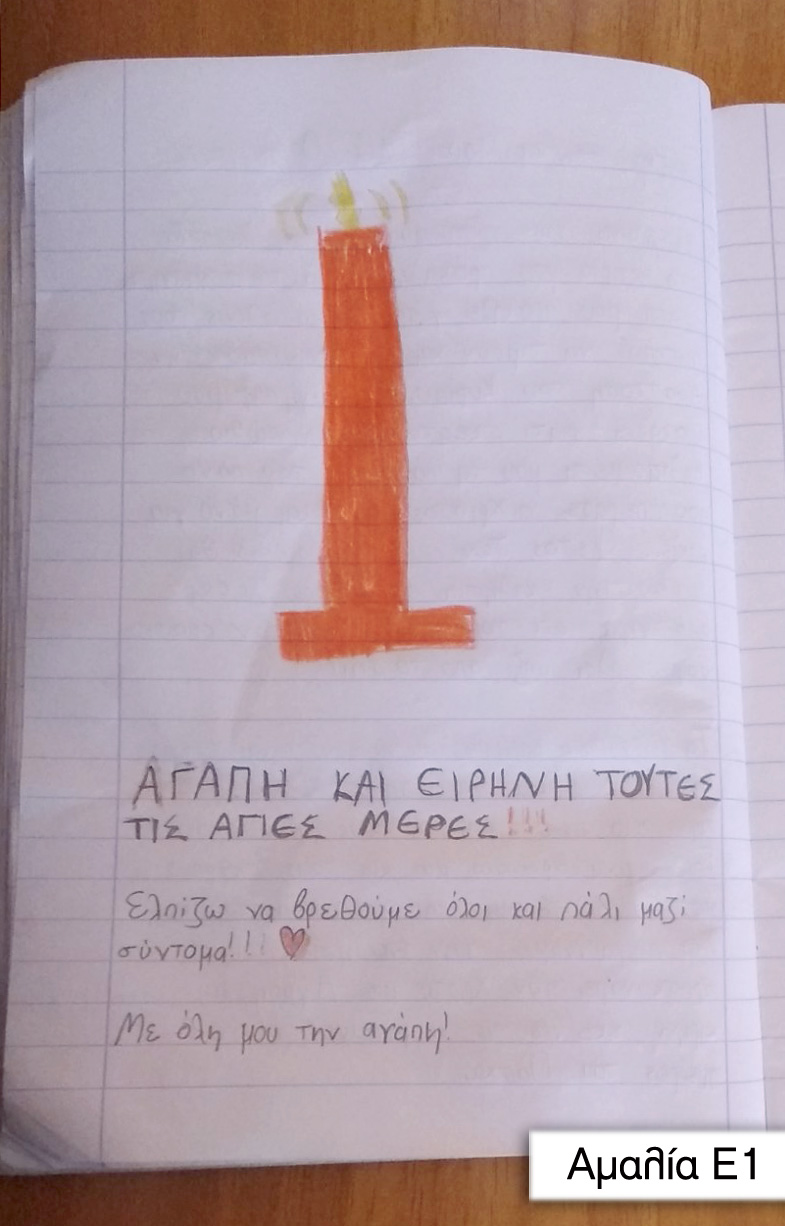 ΑΓΑΠΗ ΚΑΙ ΕΙΡΗΝΗ ΤΟΥΤΕΣ
ΤΙΣ ΑΓΙΕΣ ΜΕΡΕΣ!!!
Ελπίζω να βρεθούμε όλοι και πάλι μαζί
σύντομα!!! ♥
Με όλη μου την αγάπη!
Αμαλία Ε1